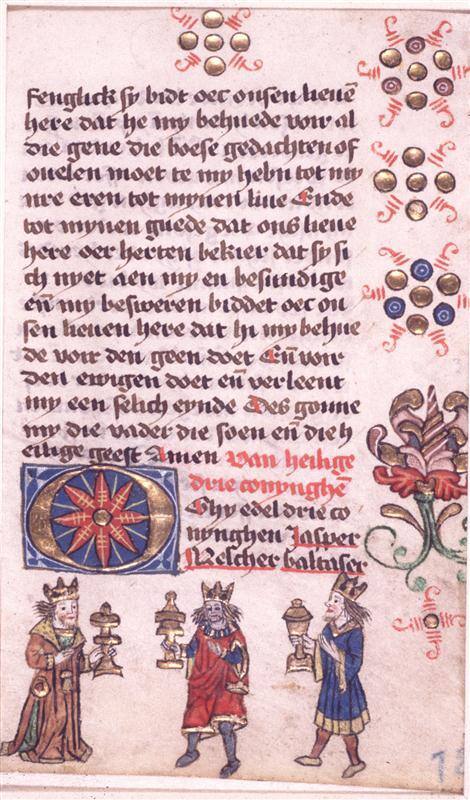 fenglick sy bidt oec onsen lieuē
here dat he my behuede voir al
die gene die boese gedachten of
ouelen moet te my hebn tot my
nre eren tot mynen liue Ende
tot mynen guede dat ons lieue
here oer herten bekier dat sy si
ch nyet aen my en besundige
eñ my besweren biddet oec on
sen lieuen here dat hi my behue
de voir den geen doet Eñ voir
den ewigen doet eñ verleent
my een selich eynde Des gonne
my die vader die soen eñ die h
eilige geest Amen Van heilige
drie conynghē
O Ghy edel drie co
nynghen Jasper
Melcher baltaser